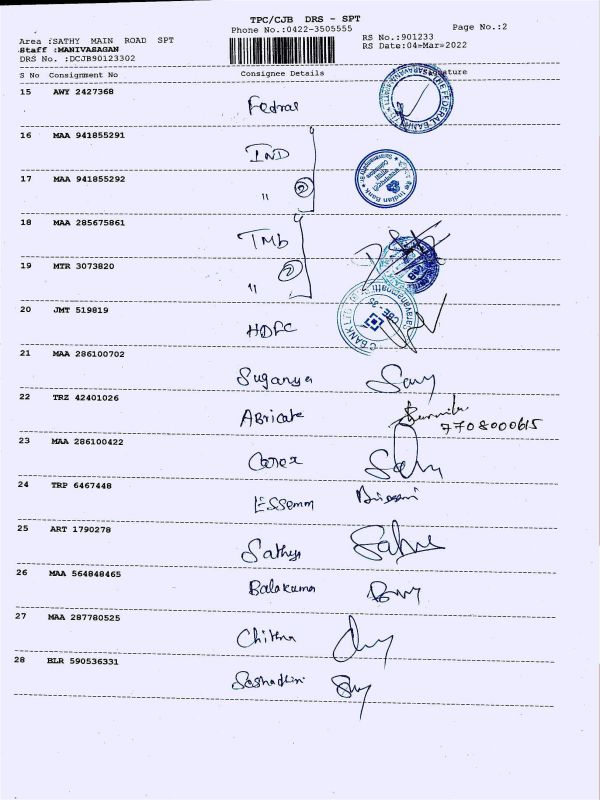 TPC/CJB DRS - SPT
Phone No.:0422-3505555
Page No.:2
Area :SATHY MAIN ROAD SPT
RS No.:901233
Staff :MANIVASAGAN
RS Date:04=Mar=2022
DRS No. :DCJB90123302
S No Consignment No Consignee Details
15 AWY 2427368 Fedral
16 MAA 941855291 IND
17 MAA 941855292 " 2
18 MAA 285675861 TMb
19 MTR 3073820 " 2
20 JMT 519819 HDFC
21 MAA 286100702 Suganya
22 TRZ 42401026 Abricate
7708000615
23 MAA 286100422 Carex
24 TRP 6467448 Essemm
25 ART 1790278 Sathya
26 MAA 564848465 Balakumar
27 MAA 287780525 Chithra
28 BLR 590536331